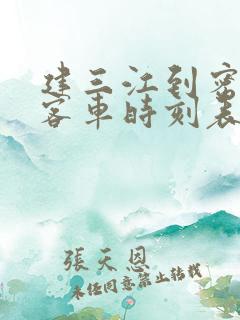 建三江到密
客車時刻表
張天恩
未经同意禁止转载